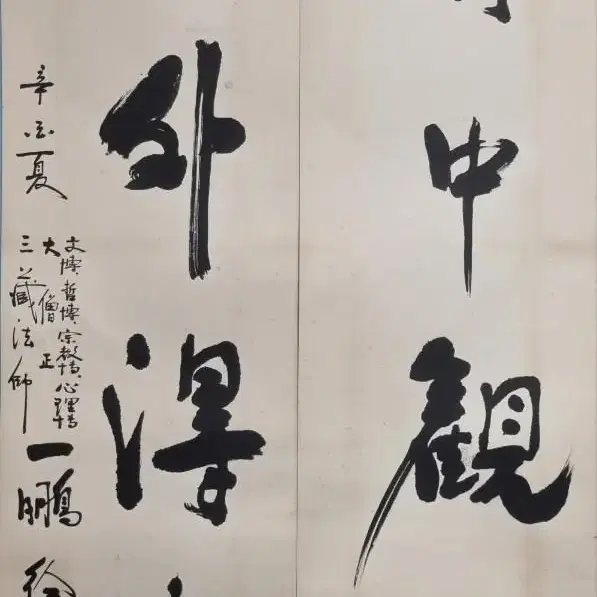 中觀
外得
辛酉夏
文博哲博宗教博心理博
大僧正
三藏法師
一鵬徐